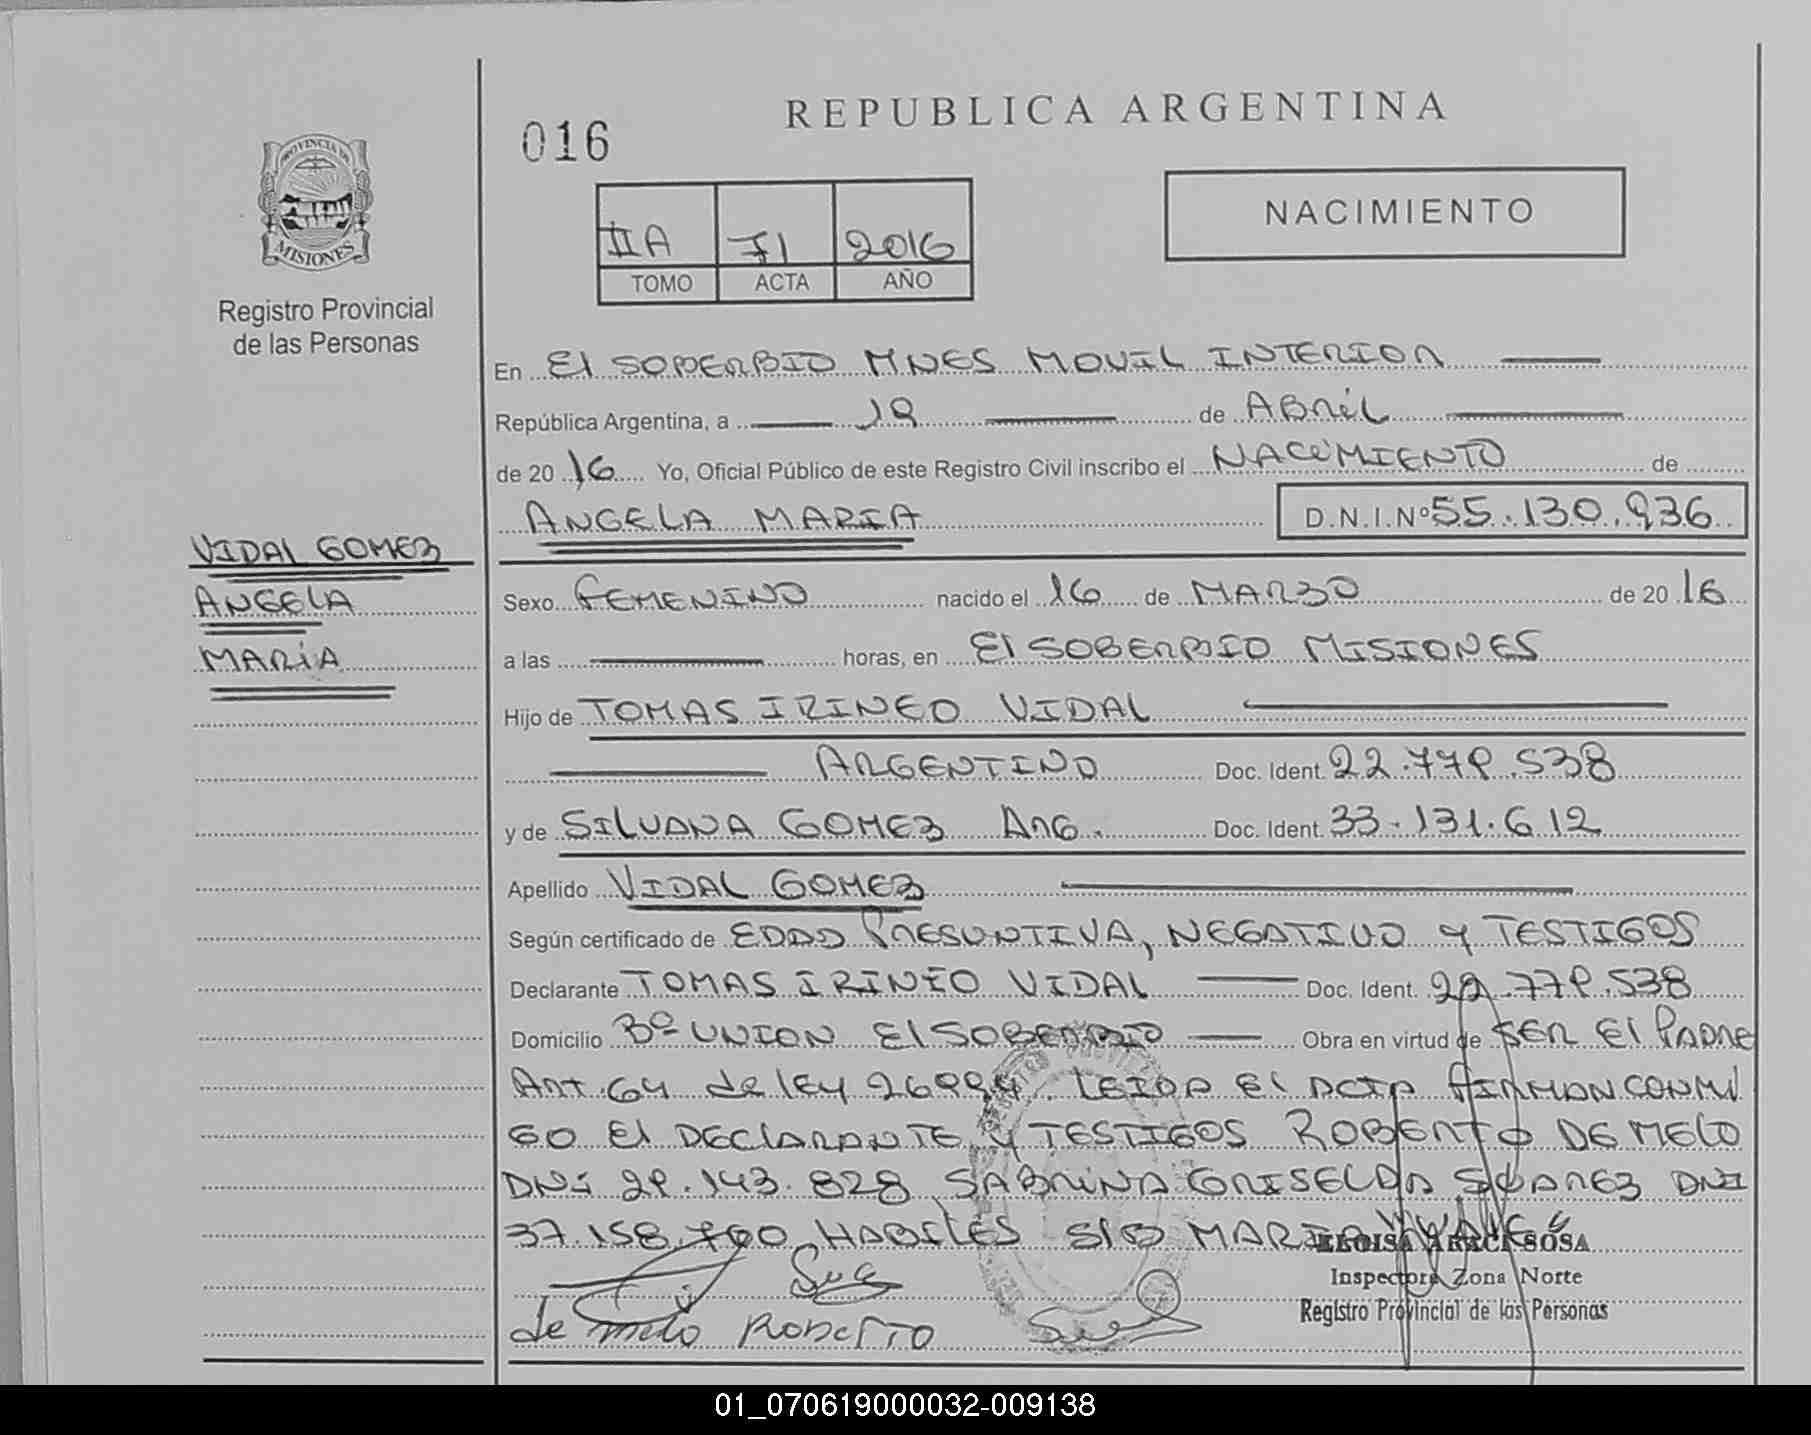 REPUBLICA ARGENTINA
016
NACIMIENTO
IIA 71 2016
TOMO ACTA AÑO
PROVINCIA DE
MISIONES
Registro Provincial
de las Personas
En El SOBERBIO MNES MOVIL INTERIOR
República Argentina, a 19 de ABRIL
de 2016 Yo, Oficial Público de este Registro Civil inscribo el NACIMIENTO de
ANGELA MARIA D.N.I.Nº 55.130.936
VIDAL GOMEZ
ANGELA
MARIA
Sexo FEMENINO nacido el 16 de MARZO de 2016
a las horas, en El SOBERBIO MISIONES
Hijo de TOMAS IRINEO VIDAL
ARGENTINO Doc. Ident. 22.779.538
y de SILVANA GOMEZ ARG. Doc. Ident. 33.131.612
Apellido VIDAL GOMEZ
Según certificado de EDAD PRESUNTIVA, NEGATIVO Y TESTIGOS
Declarante TOMAS IRINEO VIDAL Doc. Ident. 22.779.538
Domicilio Bº UNION El SOBERBIO Obra en virtud de SER El PADRE
ART.64 de lEY 26994. LEIDA El ACTA FIRMAN CONMI
GO El DEClARANTE Y TESTIGOS ROBERTO DE MELO
DNi 29.143.828 SABRINA GRISELDA SUAREZ DNI
37.158.700 HABILES S/B MARIA
ELOISA ARACI SOSA
Inspectora Zona Norte
Registro Provincial de las Personas
de melo Roberto
01_070619000032-009138